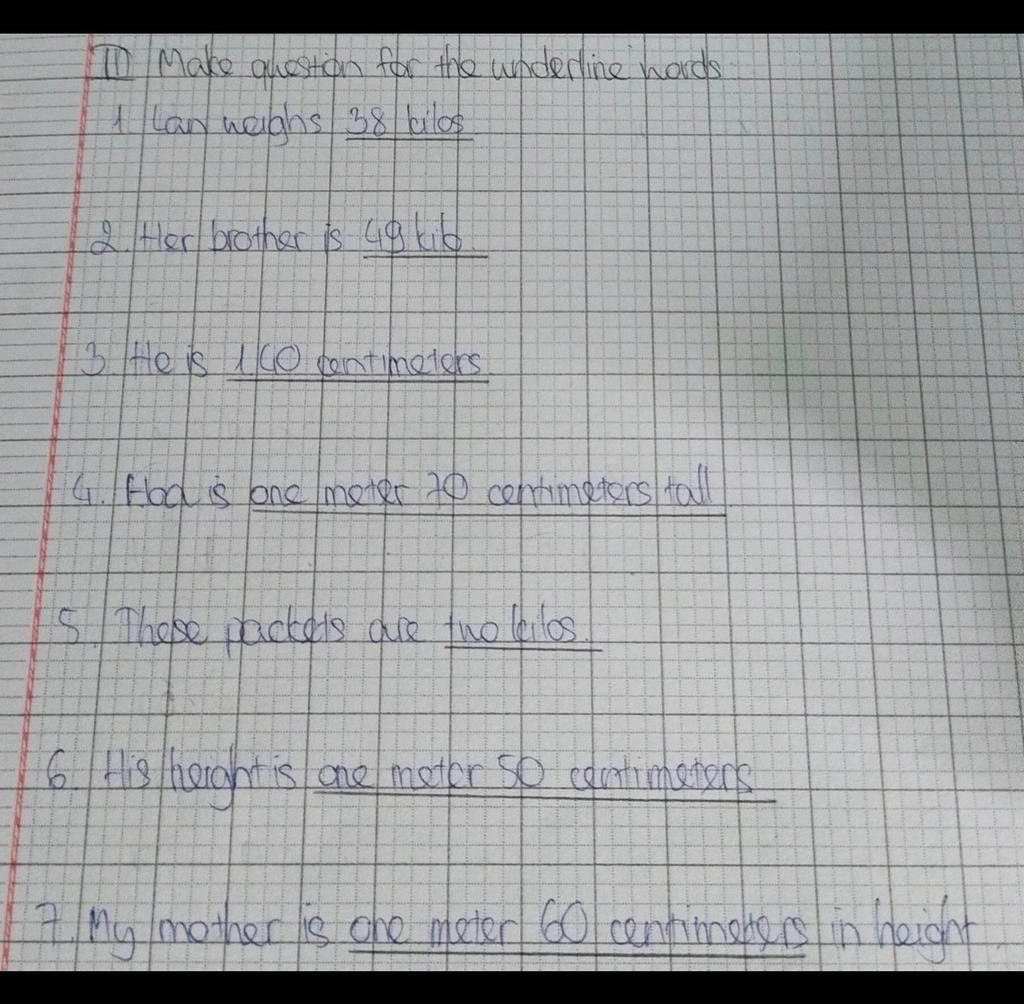 II Make question for the underline words
1 Lan weighs 38 kilos
2. Her brother is 49 kilo.
3. He is 140 centimeters.
4. Hoa is one meter 70 centimeters tall
5. These packets are two kilos.
6. His height is one meter 50 centimeters
7. My mother is one meter 60 centimeters in height.